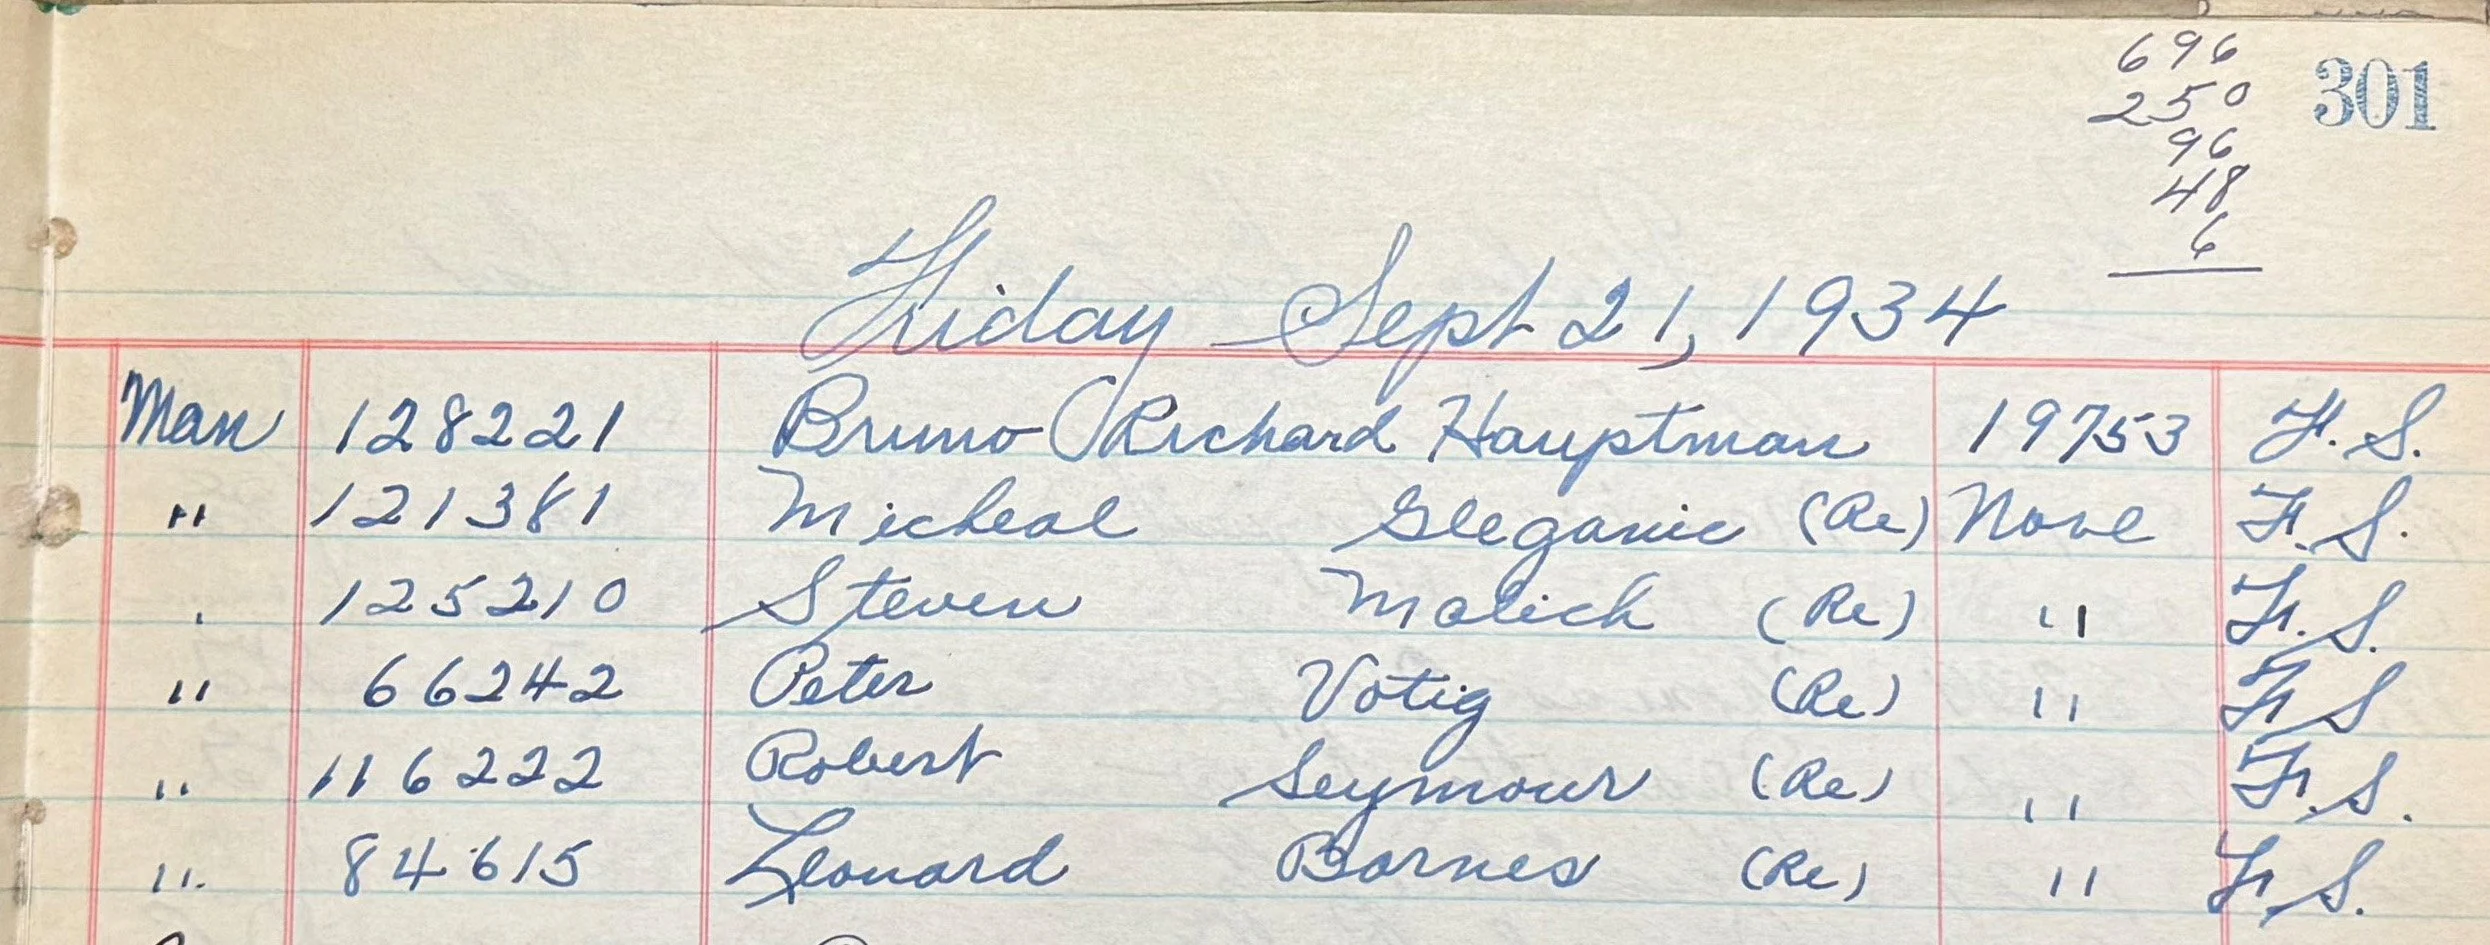 696
250
96
48
6
301
Friday Sept 21, 1934
Man 128221 Bruno Richard Hauptman 19753 F. S.
" 121381 Micheal Gleganic (Re) None F. S.
" 125210 Steven Malich (Re) " F. S.
" 66242 Peter Votig (Re) " F S
" 116222 Robert Seymour (Re) " F. S.
" 84615 Leonard Barnes (Re) " F. S.